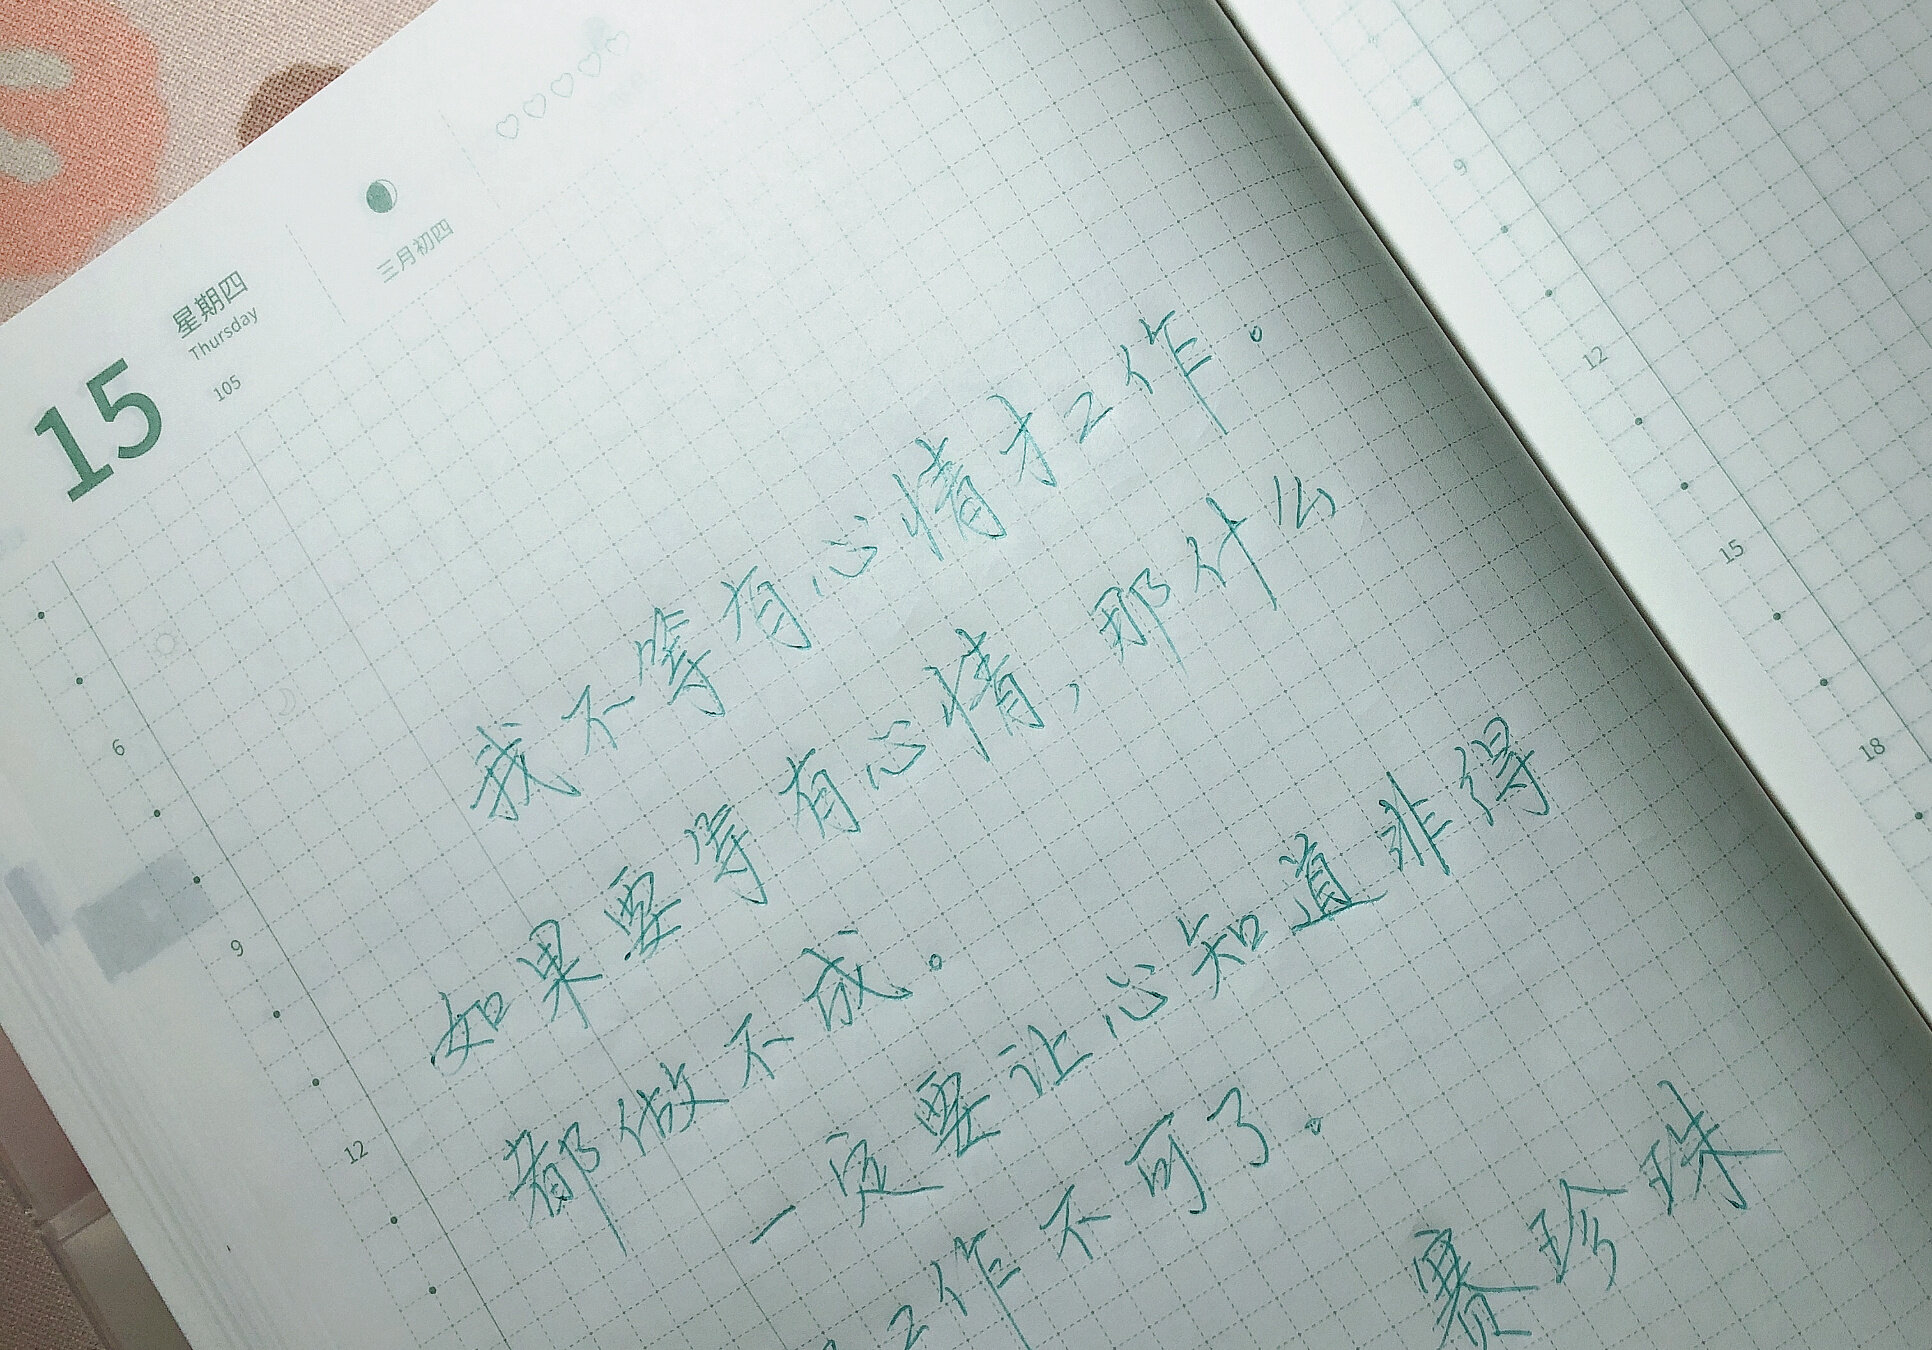 15
星期四
Thursday
105
三月初四
我不等有心情才工作。
如果要等有心情,那什么
都做不成。
一定要让心知道非得
工作不可了。
赛珍珠
6
9
12
9
12
15
18